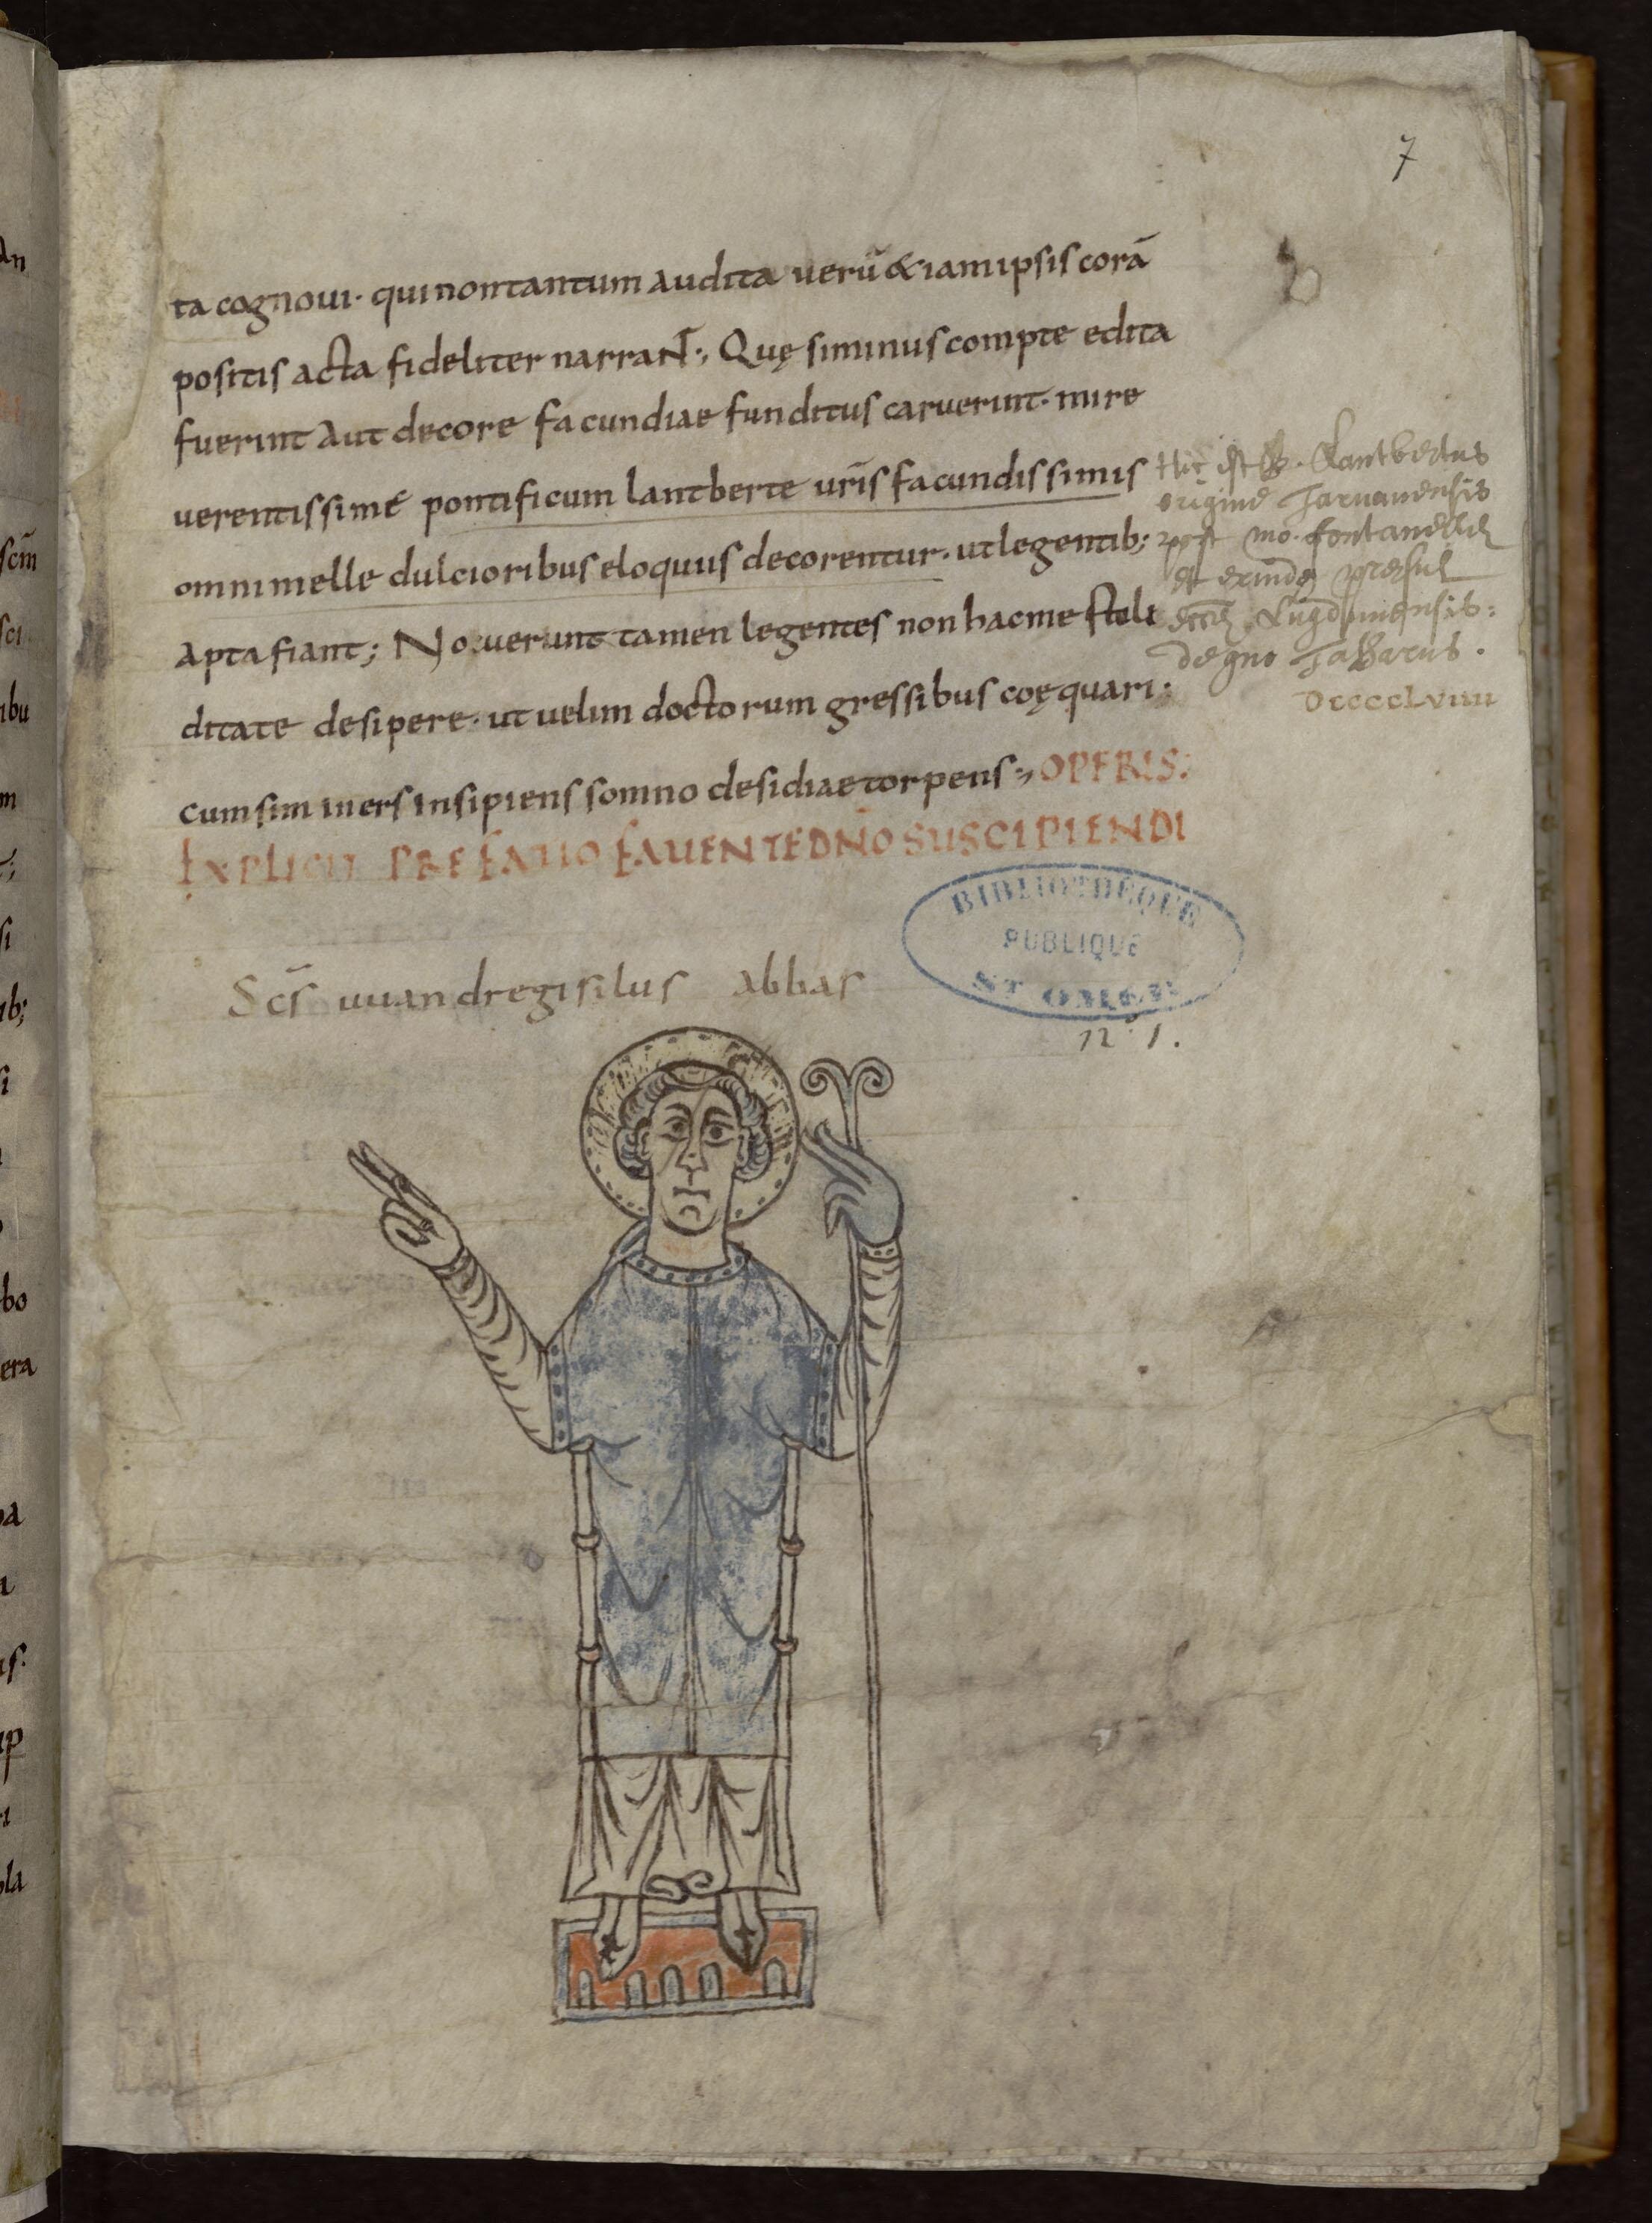 7
ta cognoui· qui non tantum audita uerū & iam ipsis corā
positis acta fideliter narrant; Quę si minus compte edita
fuerint aut decore facundiae funditus caruerint· mire
uerentissime pontificum lantberte uris facundissimis
omni melle dulcioribus eloquiis decorentur· ut legentib;
apta fiant; Nouerunt tamen legentes non hac me stoli
ditate desipere· ut uelim doctorum gressibus coęquari·
cum sim iners insipiens somno desidiae torpens; OPERIS:
EXPLICIT PREFATIO FAUENTE DNO SUSCIPIENDI
Hic est B. Lantbertus
origine Taruanensis
post mo. fontanellę
et exinde presul
eccle Lugdunensis:
Scs uuandregisilus abbas
BIBLIOTHÈQUE
PUBLIQUE
ST OMER
n° 1.
an
scm
sci
ibu
m
si
ib;
bo
era
a
up
la